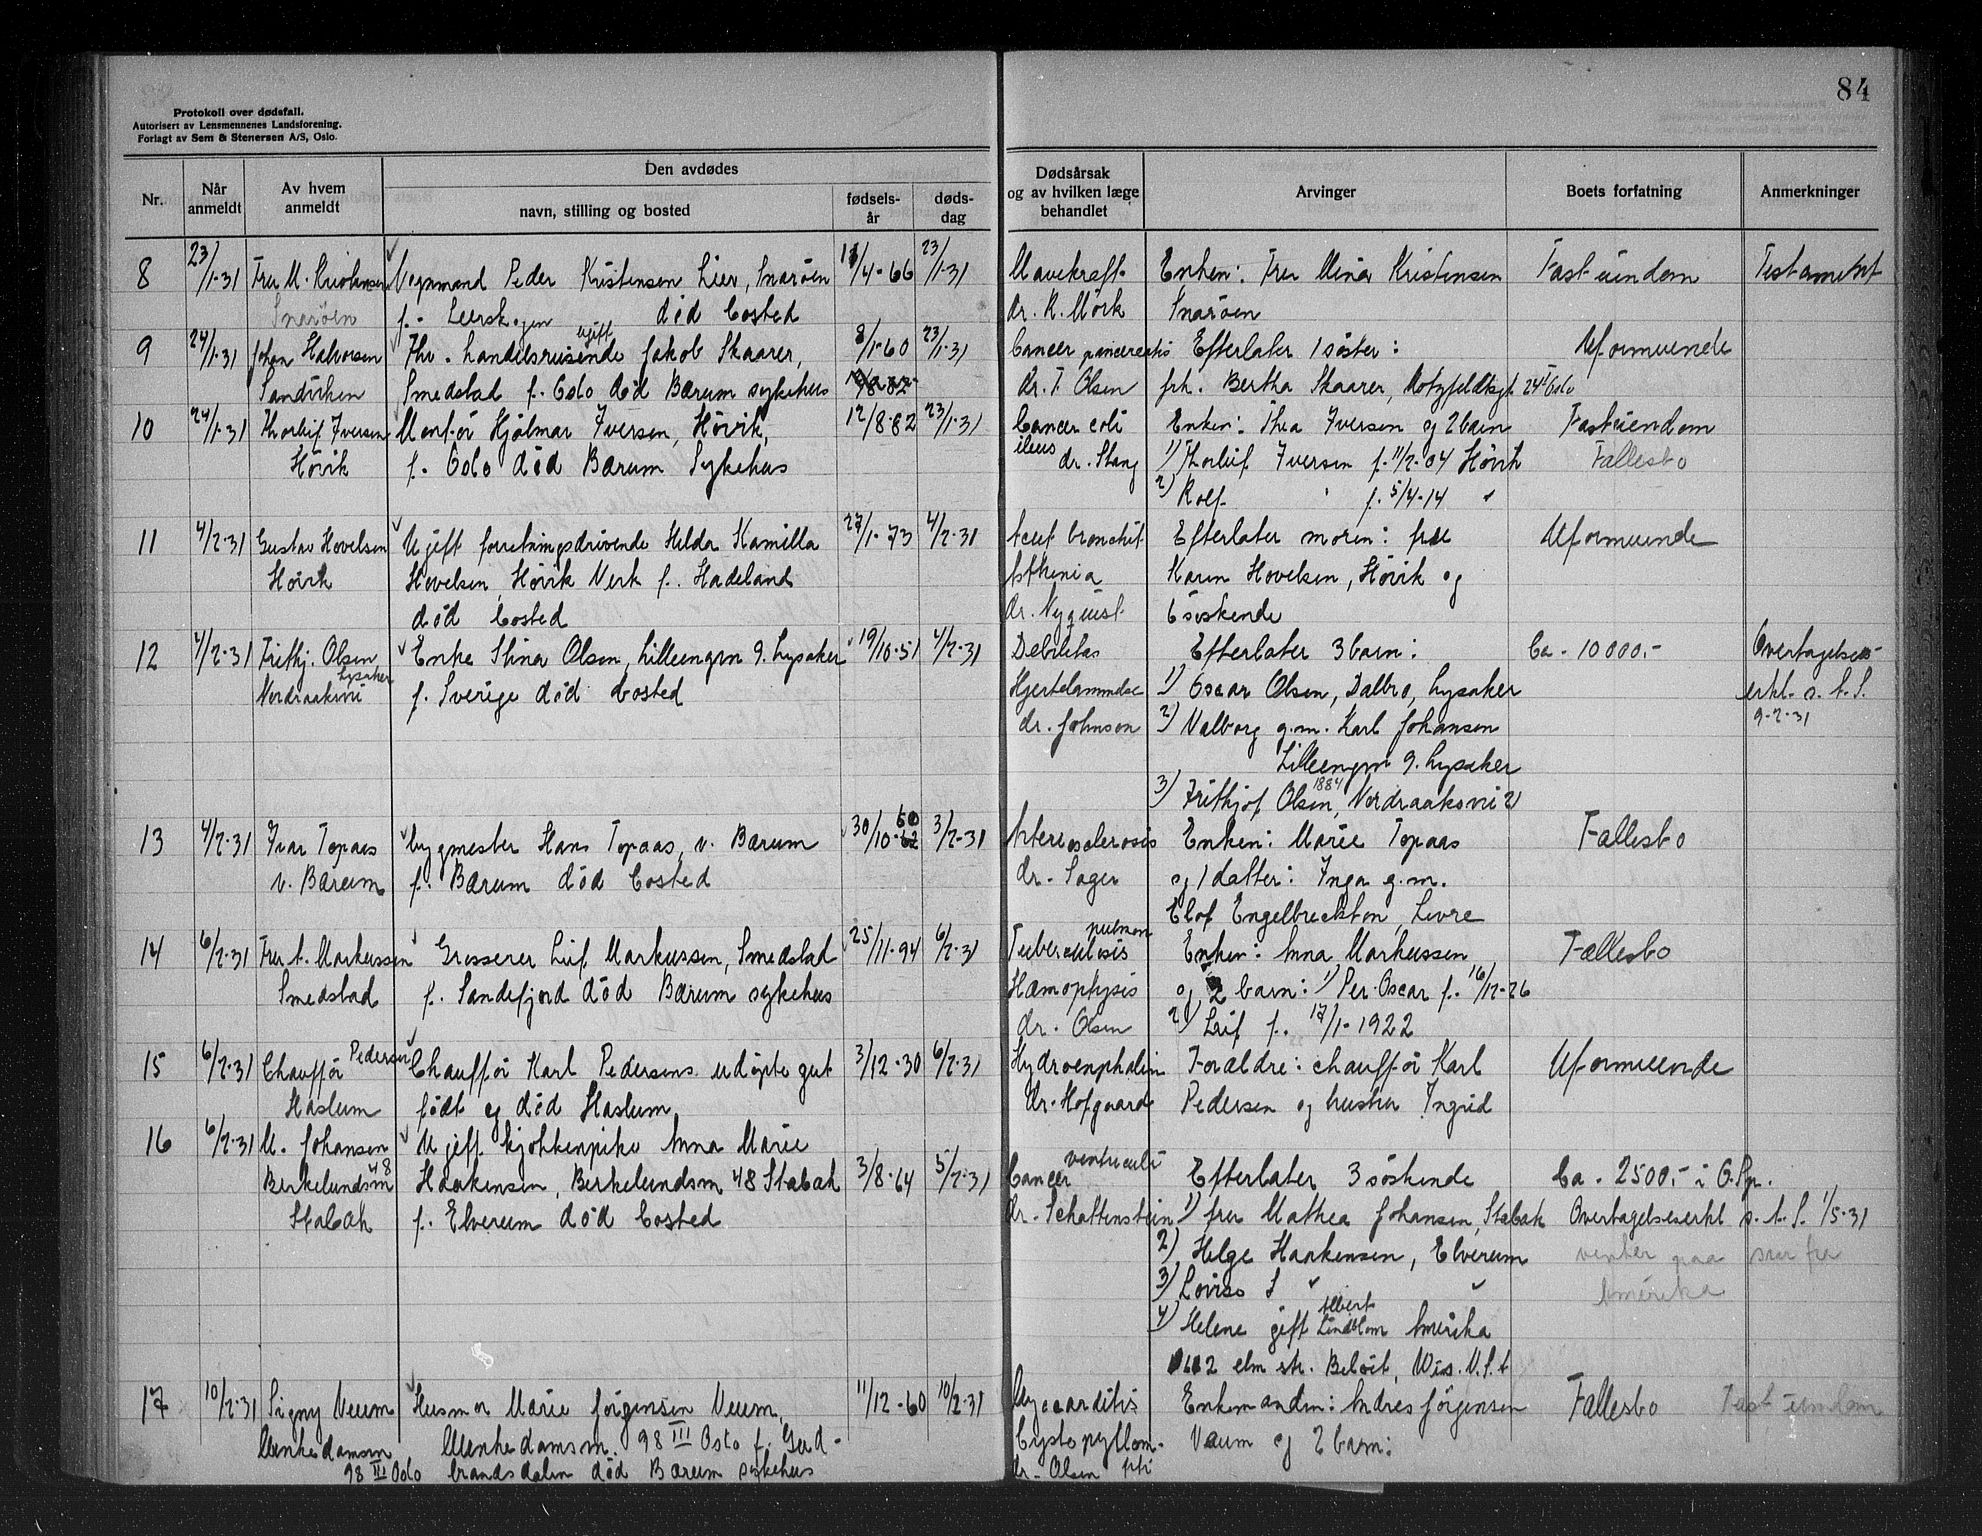 84
Protokoll over dødsfall.
Autorisert av Lensmennenes Landsforening.
Forlagt av Sem & Stenersen A/S, Oslo.
Nr.
Når anmeldt
Av hvem anmeldt
Den avdødes
navn, stilling og bosted
fødsels-år
døds-dag
Dødsårsak og av hvilken læge behandlet
Arvinger
Boets forfatning
Anmerkninger
8 23/1-31 Fru M. Kristensen Vognmand Peder Kristensen Lier, Snarøen /4-66 23/1-31 Mavekræft Enken: Fru Mina Kristensen Fast eiendom Testament
Snarøen f. Lierskogen død bosted dr. R. Mörk Snarøen
9 24/1-31 Johan Halvorsen Fhv. handelsreisende ugift Jakob Skaarer, 8/1-60 23/1-31 Cancer pancreatis Efterlater 1 søster: Uformuende
Sandviken Smedstad f. Oslo død Bærum sykehus dr. T. Olsen frk. Bertha Skaarer, Motzfeldtsgt 24 I Oslo
10 24/1-31 Thorleif Iversen Montør Hjalmar Iversen, Høvik, 12/8-82 23/1-31 Cancer coli Enken: Thea Iversen og 2 barn Fast eiendom
Høvik f. Oslo død Bærum Sykehus ileus dr. Stang 1) Thorleif Iversen f. 11/2-04 Høvik Fællesbo
2) Rolf " f. 5/4-14 "
11 4/2-31 Gustav Hovelsen Ugift forretningsdrivende Helda Kamilla 27/1-73 4/2-31 Acut bronchit Efterlater moren: fru Uformuende
Høvik Hovelsen, Høvik Verk f. Hadeland Asthenia Karen Hovelsen, Høvik og
død bosted dr. Nyquist 6 søskende
12 4/2-31 Frithj. Olsen, Enke Stina Olsen, Lilleengvn 9. Lysaker 19/10-51 4/2-31 Debilitas Efterlater 3 barn: Ca. 10000.- Overtagelses-
Nordraaksvei Lysaker f. Sverige død bosted Hjertelammelse 1) Oscar Olsen, Dalbo, Lysaker erkl. s. t. S.
dr. Johnson 2) Valborg g.m. Karl Johansen 9-2-31
Lilleengvn 9. Lysaker
3) Frithjof Olsen, 1884 Nordraaksvei 2
13 4/2-31 Ivar Topaas Bygmester Hans Topaas, v. Bærum 30/10-60 3/2-31 Arteriosclerosis Enken: Marie Topaas Fællesbo
v. Bærum f. Bærum død bosted dr. Sager og 1 datter: Inga g.m.
Elof Engelbrecktson, Levre
14 6/2-31 Fru A. Markussen Grosserer Leif Markussen, Smedstad 25/11-94 6/2-31 Tuberculosis pulmon Enken: Anna Markussen Fællesbo
Smedstad f. Sandefjord død Bærum sykehus Hæmophysis og 2 barn: 1) Per Oscar f. 16/12-26
dr. Olsen 2) Leif f. 17/1-1922
15 6/2-31 Chauffør Pedersen Chauffør Karl Pedersens udøpte gut 3/12-30 6/2-31 Hydroenphalin Forældre: chauffør Karl Uformuende
Haslum født og død Haslum dr. Hofgaard Pedersen og hustru Ingrid
16 6/2-31 M. Johansen Ugift kjøkkenpike Anna Marie
Berkelundsvn 48 Haakensen, Berkelundsvn 48 Stabæk 3/8-64 5/2-31 Cancer ventriculi Efterlater 3 søskende Ca. 2500.- i O. Sp.
Stabæk f. Elverum død bosted dr. Schattenstein 1) fru Mathea Johansen, Stabæk Overtagelseserkl s. t. S. 1/5-31
2) Helge Haakensen, Elverum venter paa svar fra
3) Lovise S " " Amerika
4) Helene gift Albert Lindblom Amerika
1612 elm str. Beloit, Wis. U.S.A
17 10/2-31 Signy Veum Husmor Marie Jørgensen Veum, 11/12-60 10/2-31 Myocarditis Enkemanden: Andres Jørgensen Fællesbo Fast eiendom
Munkedamsvn Munkedamsvn. 98 III Oslo f. Gud- Cystopyllom- Veum og 2 barn:
98 III Oslo brandsdalen død Bærum sykehus dr. Olsen